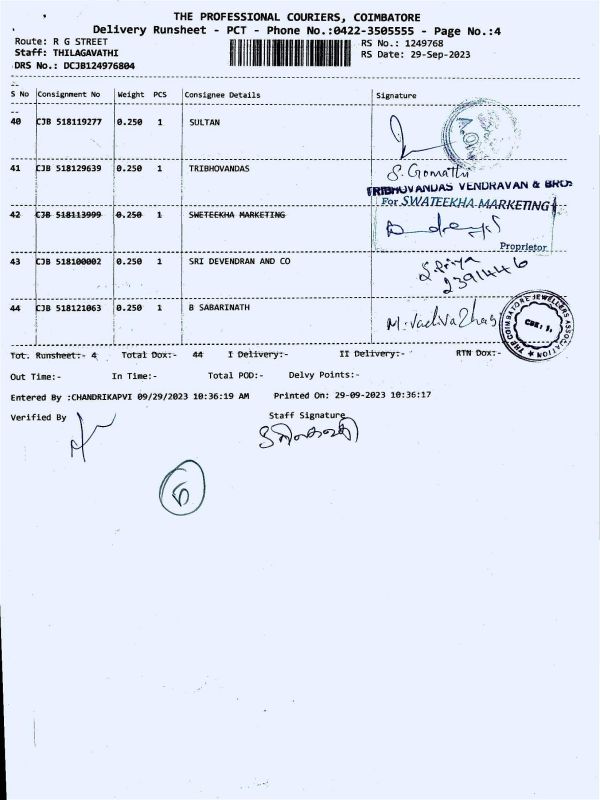 THE PROFESSIONAL COURIERS, COIMBATORE
Delivery Runsheet - PCT - Phone No.:0422-3505555 - Page No.:4
Route: R G STREET RS No.: 1249768
Staff: THILAGAVATHI RS Date: 29-Sep-2023
DRS No.: DCJB124976804
S No Consignment No Weight PCS Consignee Details Signature
40 CJB 518119277 0.250 1 SULTAN
41 CJB 518129639 0.250 1 TRIBHOVANDAS S. Gomathi
TRIBHOVANDAS VENDRAVAN & BROS
For SWATEEKHA MARKETING
42 CJB 518113999 0.250 1 SWETEEKHA MARKETING
Proprietor
43 CJB 518100002 0.250 1 SRI DEVENDRAN AND CO S. Priya
2391446
44 CJB 518121063 0.250 1 B SABARINATH
THE COIMBATORE JEWELLERS ASSOCIATION
CBE: 1.
Tot. Runsheet:- 4 Total Dox:- 44 I Delivery:- II Delivery:- RTN Dox:-
Out Time:- In Time:- Total POD:- Delvy Points:-
Entered By :CHANDRIKAPVI 09/29/2023 10:36:19 AM Printed On: 29-09-2023 10:36:17
Verified By Staff Signature